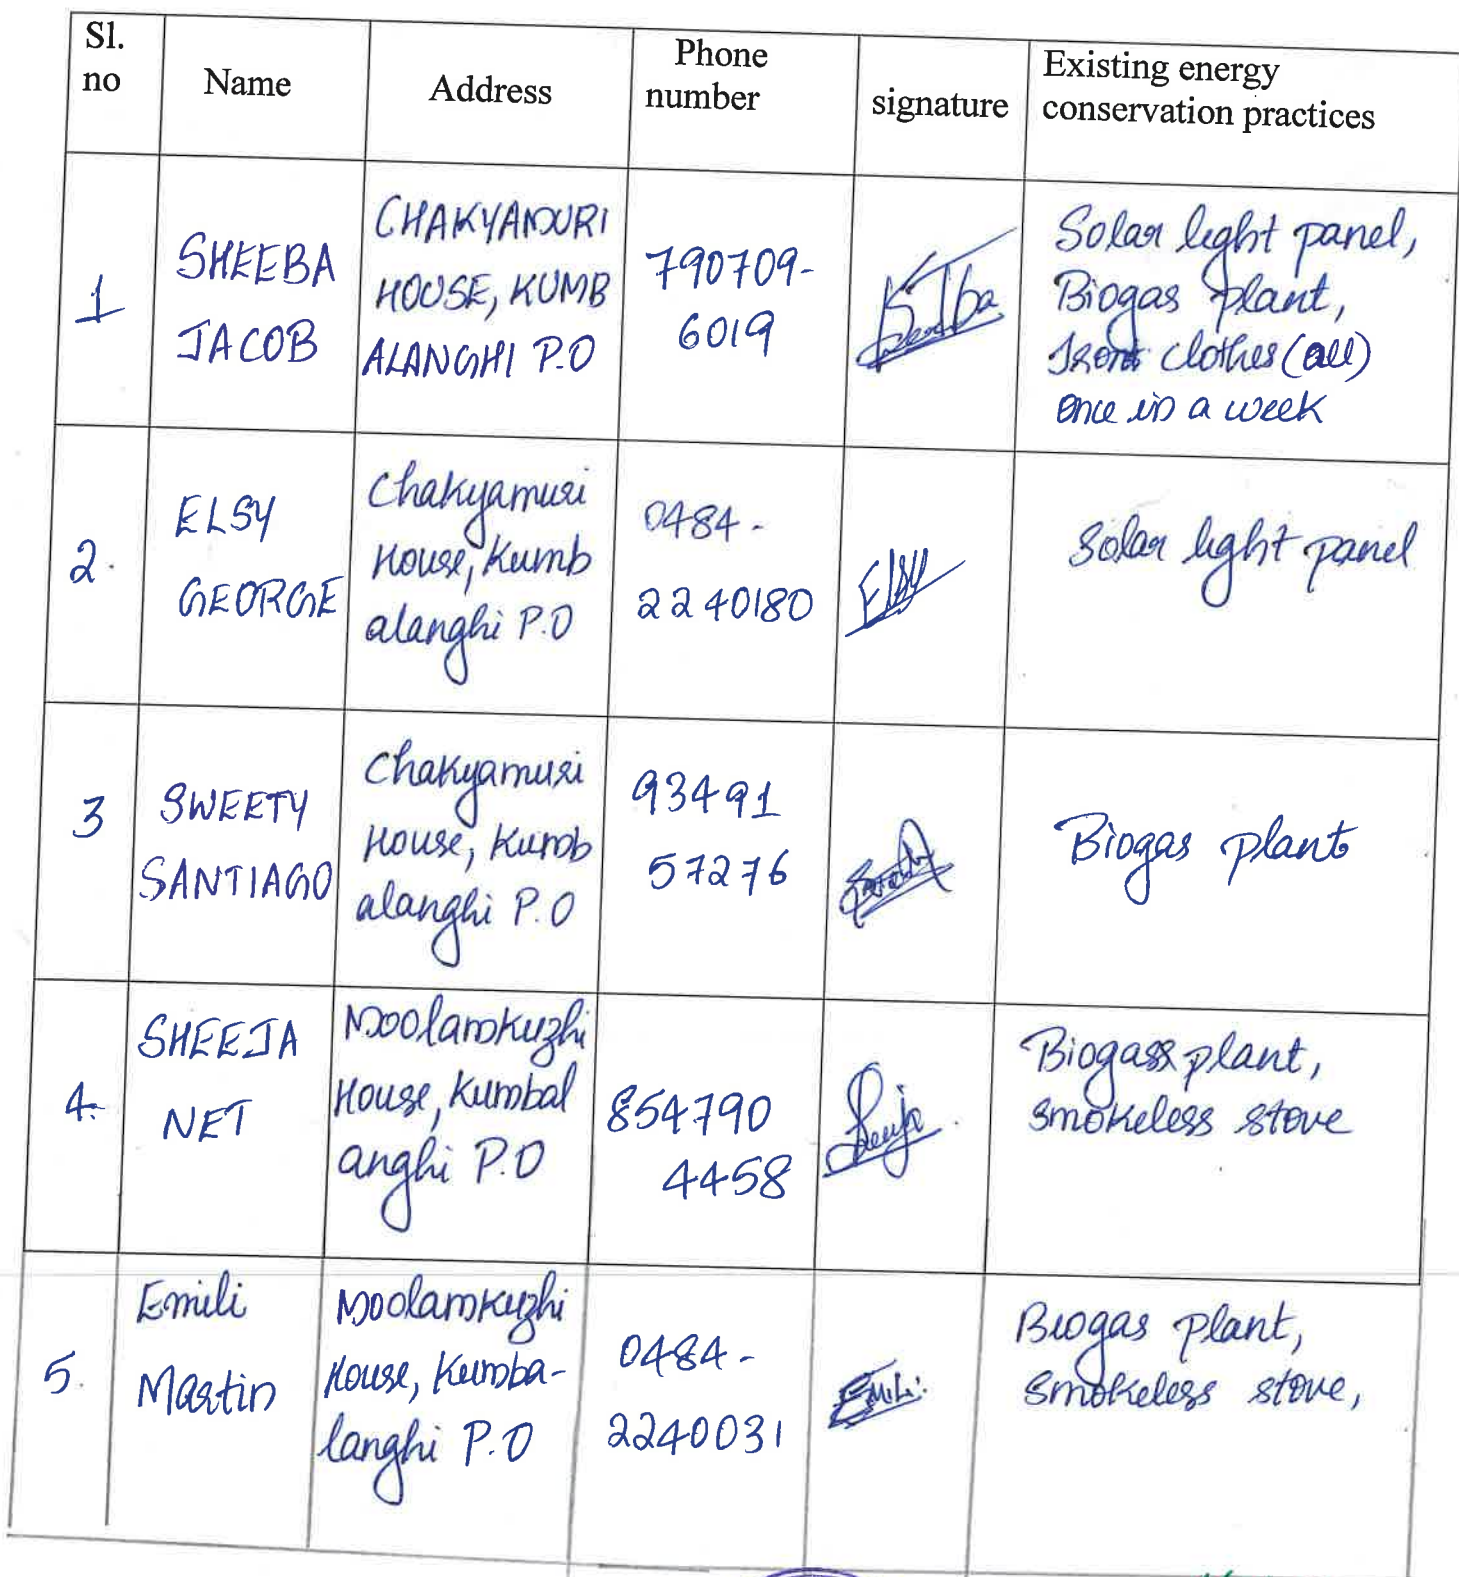 Sl.
no
Name
Address
Phone
number
signature
Existing energy
conservation practices
1
SHEEBA
JACOB
CHAKYAMURI
HOUSE, KUMB
ALANGHI P.O
790709-
6019
Solar light panel,
Biogas plant,
Iron clothes (all)
once in a week
2.
ELSY
GEORGE
Chakyamuri
House, Kumb
alanghi P.O
0484-
2240180
Elsy
Solar light panel
3
SWEETY
SANTIAGO
Chakyamuri
House, Kumb
alanghi P.O
93491
57276
Biogas plant
4.
SHEEJA
NET
Moolamkuzhi
House, Kumbal
anghi P.O
854790
4458
Sheeja
Biogass plant,
smokeless stove
5.
Emili
Martin
Moolamkuzhi
House, Kumba-
langhi P.O
0484-
2240031
Emili
Biogas plant,
Smokeless stove,